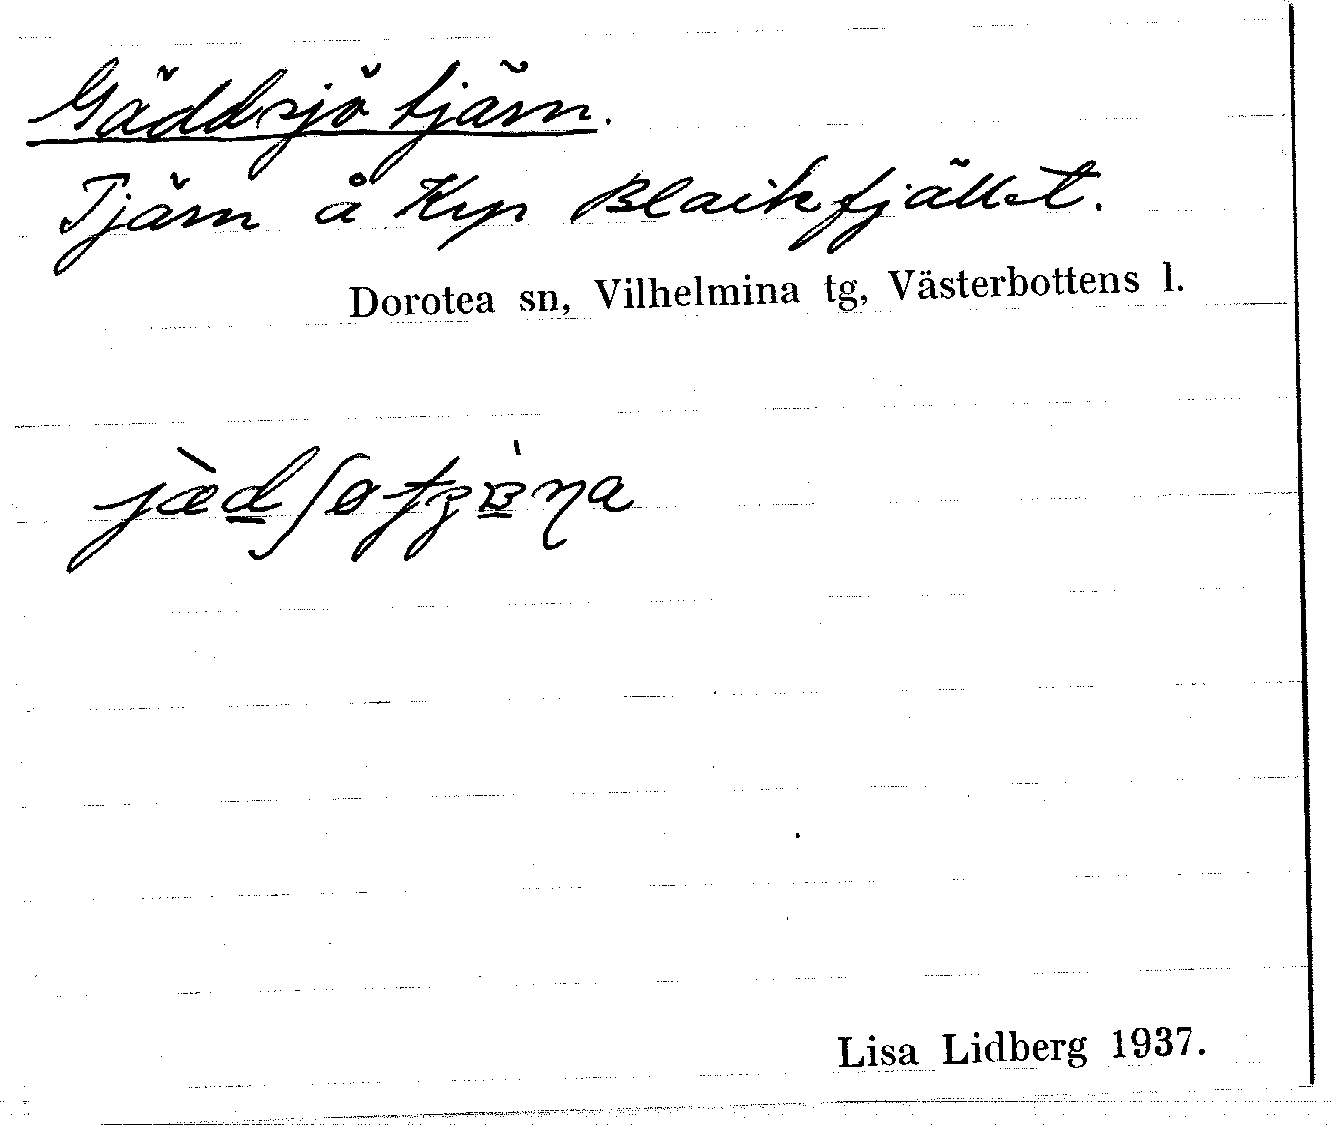 Gäddsjötjärn.
Tjärn å Krp Blaikfjället.
Dorotea sn, Vilhelmina tg, Västerbottens l.
Lisa Lidberg 1937.